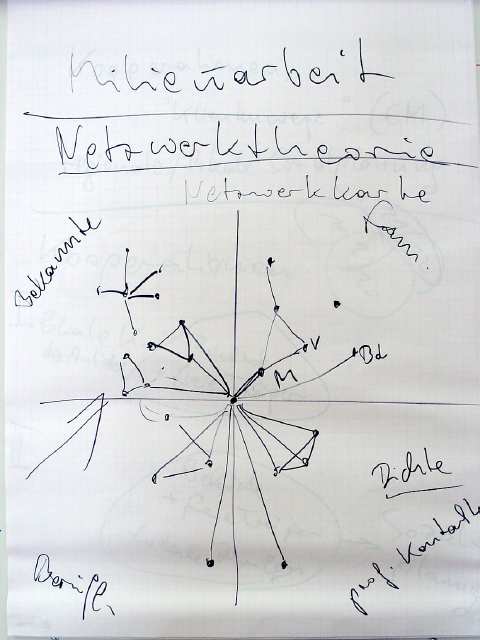 Milieuarbeit
Netzwerktheorie
Netzwerkkarte
Bekannte
Fam.
V
M
Bd
Dichte
Berufl.
prof. Kontakte